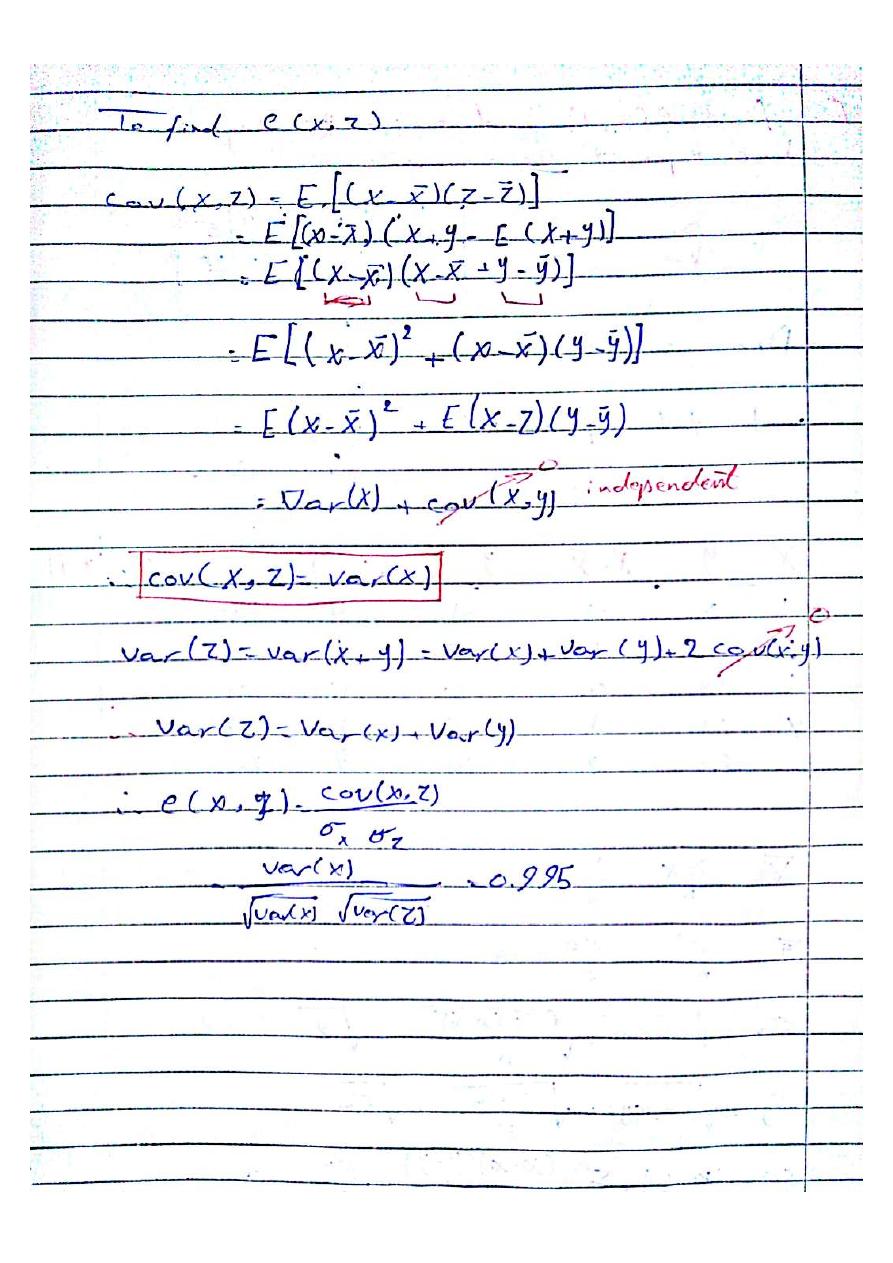 To find ρ(x,z)
cov(x,z) = E[(x-x̄)(z-z̄)]
= E[(x-x̄)(x+y - E(x+y)]
= E[(x-x̄)(x-x̄+y-ȳ)]
= E[(x-x̄)² + (x-x̄)(y-ȳ)]
= E(x-x̄)² + E(x-z)(y-ȳ)
= Var(x) + cov(x,y) 0 independent
∴ cov(x,z) = var(x)
var(z) = var(x+y) = var(x) + var(y) + 2 cov(x,y) 0
∴ Var(z) = Var(x) + Var(y)
∴ ρ(x,z) = cov(x,z)
σx σz
var(x)
√var(x) √var(z) = 0.995